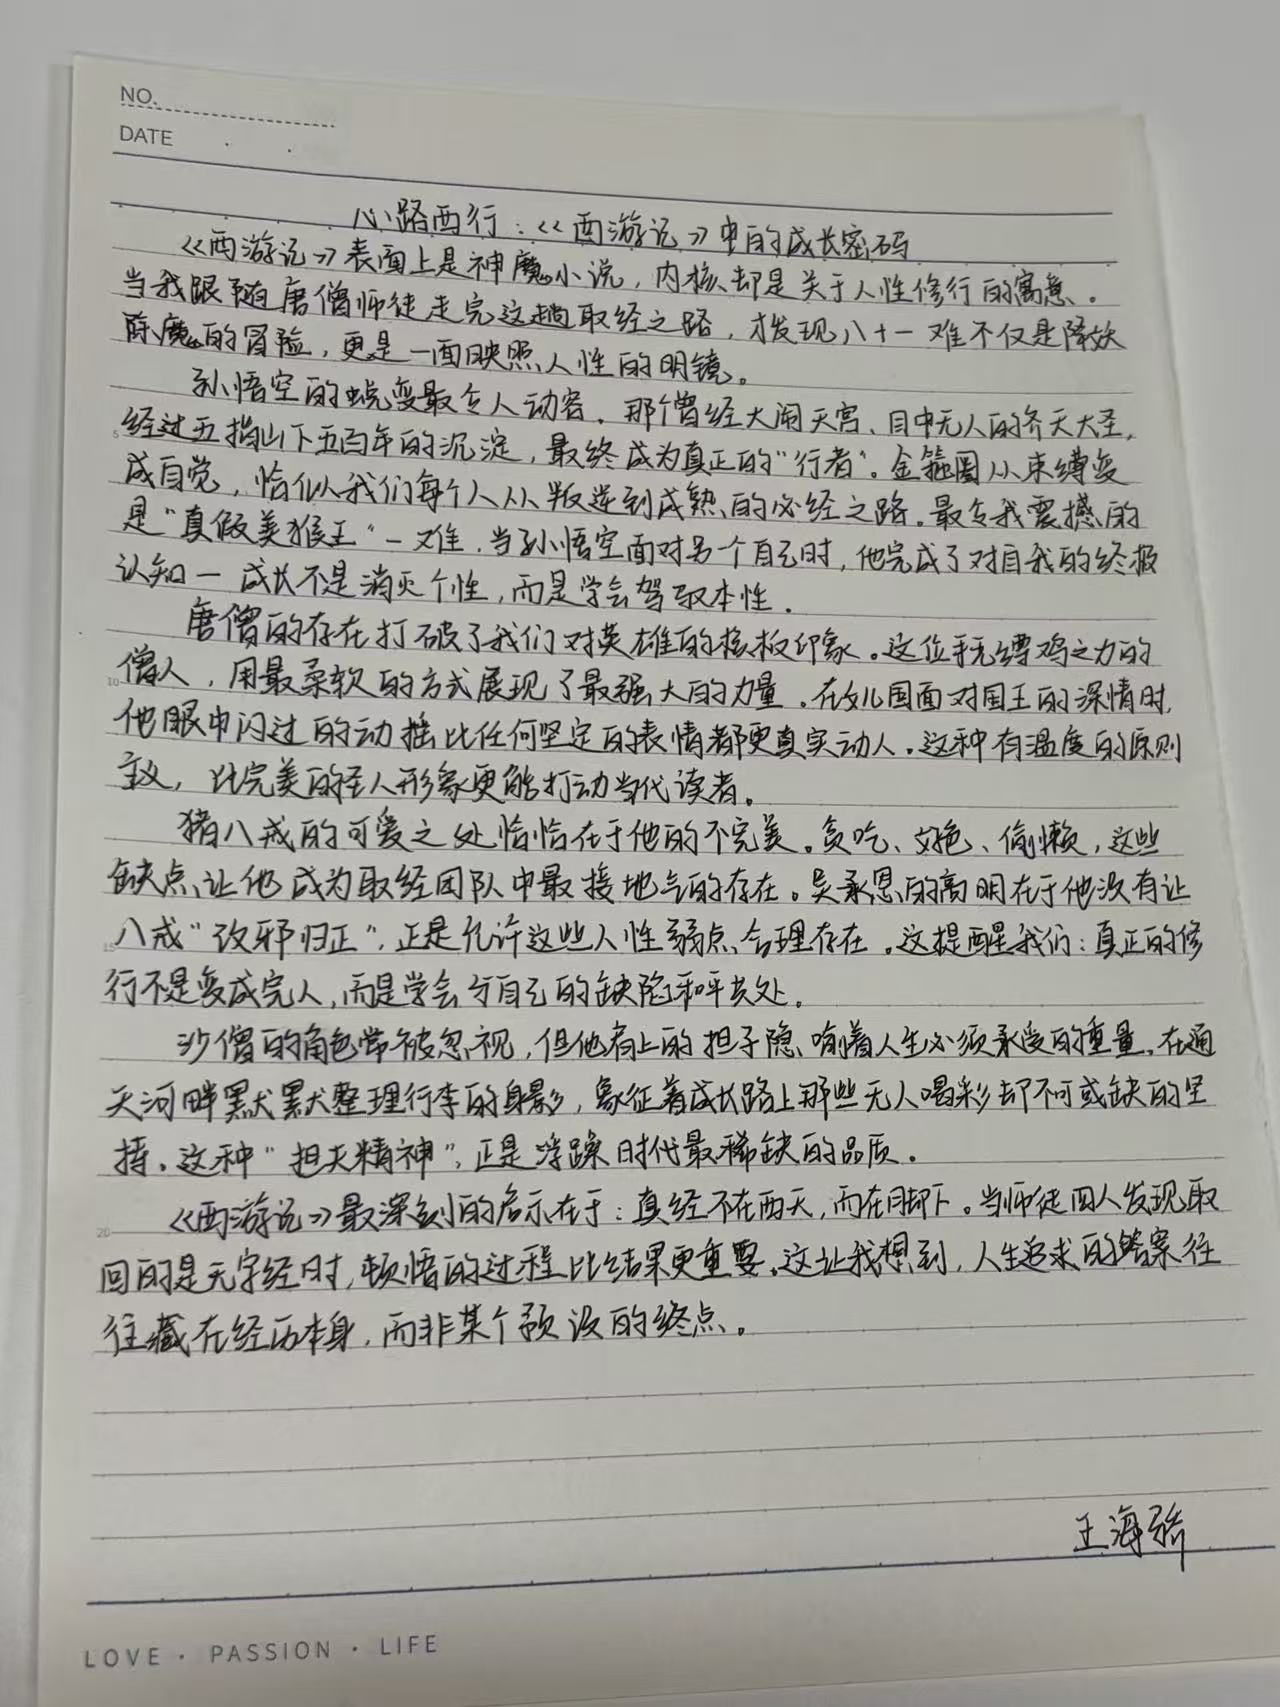 NO.
DATE
心路西行:《西游记》中的成长密码
《西游记》表面上是神魔小说,内核却是关于人性修行的寓意。
当我跟随唐僧师徒走完这趟取经之路,才发现八十一难不仅是降妖
除魔的冒险,更是一面映照人性的明镜。
孙悟空的蜕变最令人动容。那个曾经大闹天宫、目中无人的齐天大圣,
5
经过五指山下五百年的沉淀,最终成为真正的“行者”。金箍圈从束缚变
成自觉,恰似我们每个人从叛逆到成熟的必经之路。最令我震撼的
是“真假美猴王”一难,当孙悟空面对另一个自己时,他完成了对自我的终极
认知一成长不是消灭个性,而是学会驾驭本性.
唐僧的存在打破了我们对英雄的核板印象。这位手无缚鸡之力的
10
僧人,用最柔软的方式展现了最强大的力量。在女儿国面对国王的深情时,
他眼中闪过的动摇比任何坚定的表情都更真实动人。这种有温度的原则
主义,比完美的圣人形象更能打动当代读者。
猪八戒的可爱之处恰恰在于他的不完美。贪吃、好色、偷懒,这些
缺点让他成为取经团队中最接地气的存在。吴承恩的高明在于他没有让
15
八戒“改邪归正”,正是允许这些人性弱点合理存在。这提醒我们:真正的修
行不是变成完人,而是学会与自己的缺陷和平共处。
沙僧的角色常被忽视,但他肩上的担子隐喻着人生必须承受的重量。在通
天河畔默默整理行李的身影,象征着成长路上那些无人喝彩却不可或缺的坚
持。这种“担夫精神”,正是浮躁时代最稀缺的品质。
《西游记》最深刻的启示在于:真经不在西天,而在脚下。当师徒四人发现取
20
回的是无字经时,顿悟的过程比结果更重要。这让我想到,人生追求的答案往
往藏在经历本身,而非某个预设的终点。
王海骄
LOVE · PASSION · LIFE